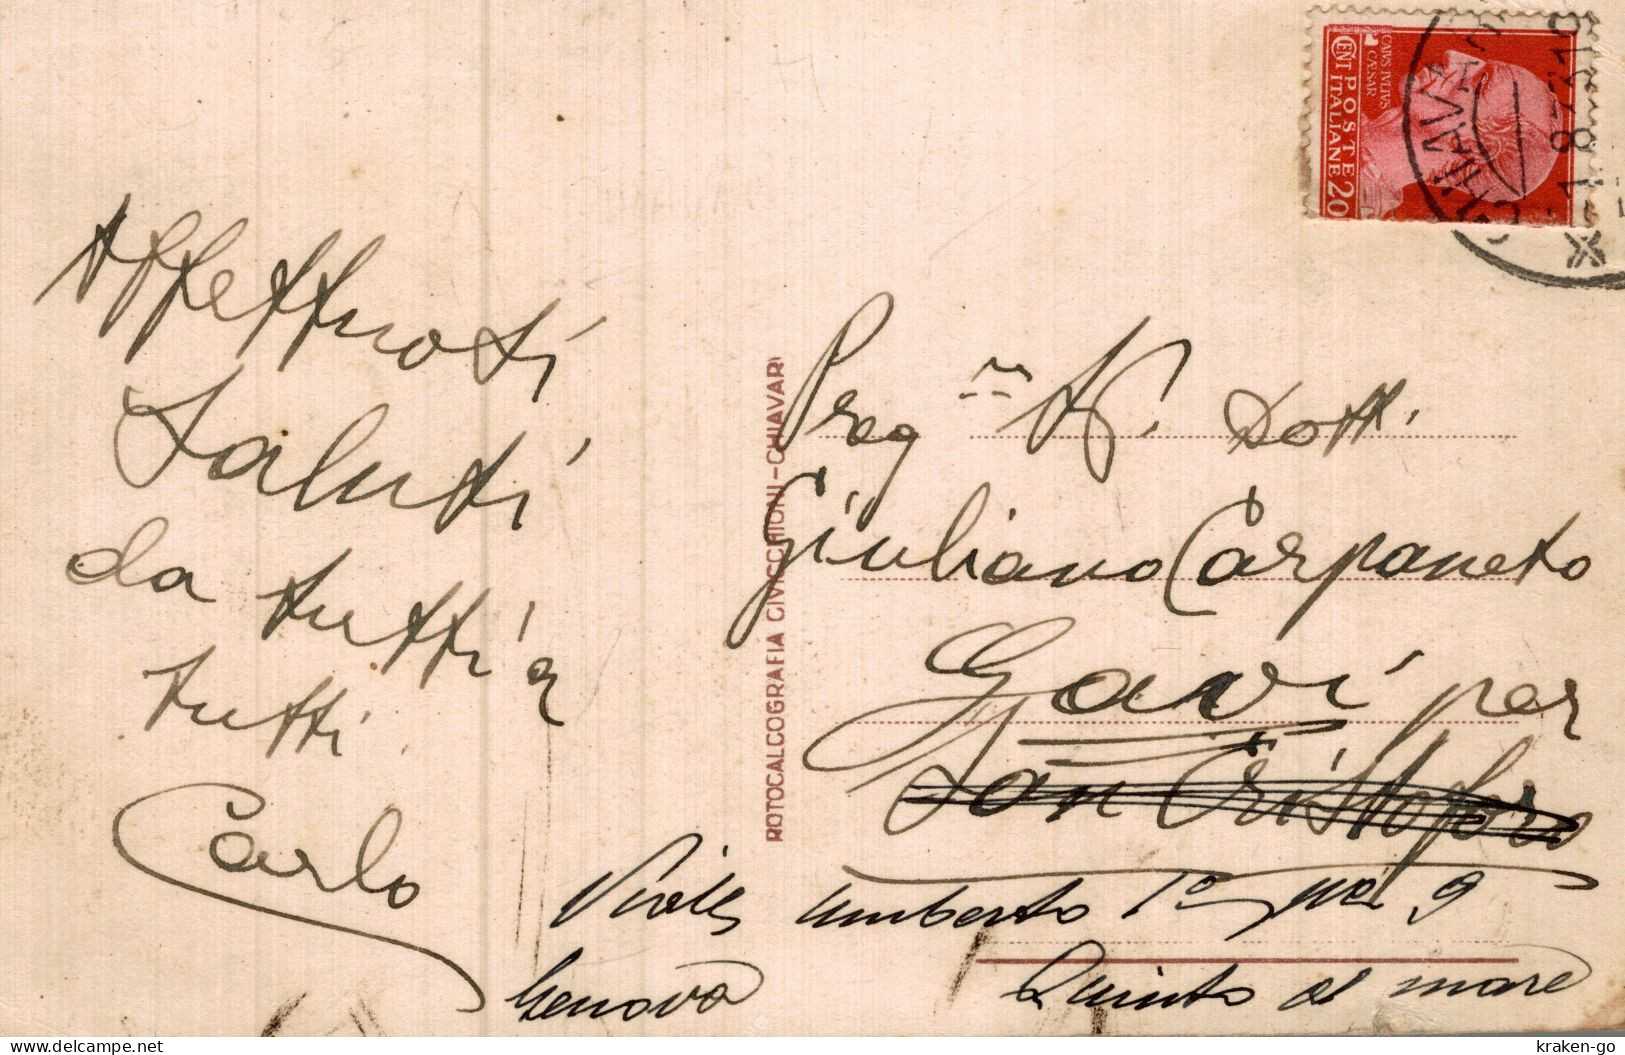 CAIVS IVLIVS
CÆSAR
POSTE
ITALIANE
CENT 20
CHIAVARI
Affettuosi
Saluti
da tutti a
tutti.
Carlo
ROTOCALCOGRAFIA CIVICCHIONI - CHIAVARI
Preg Dott.
Giuliano Carpaneto
Gavi per
San Cristoforo
Viale Umberto 1º 9
Genova Quinto al mare
kraken-go